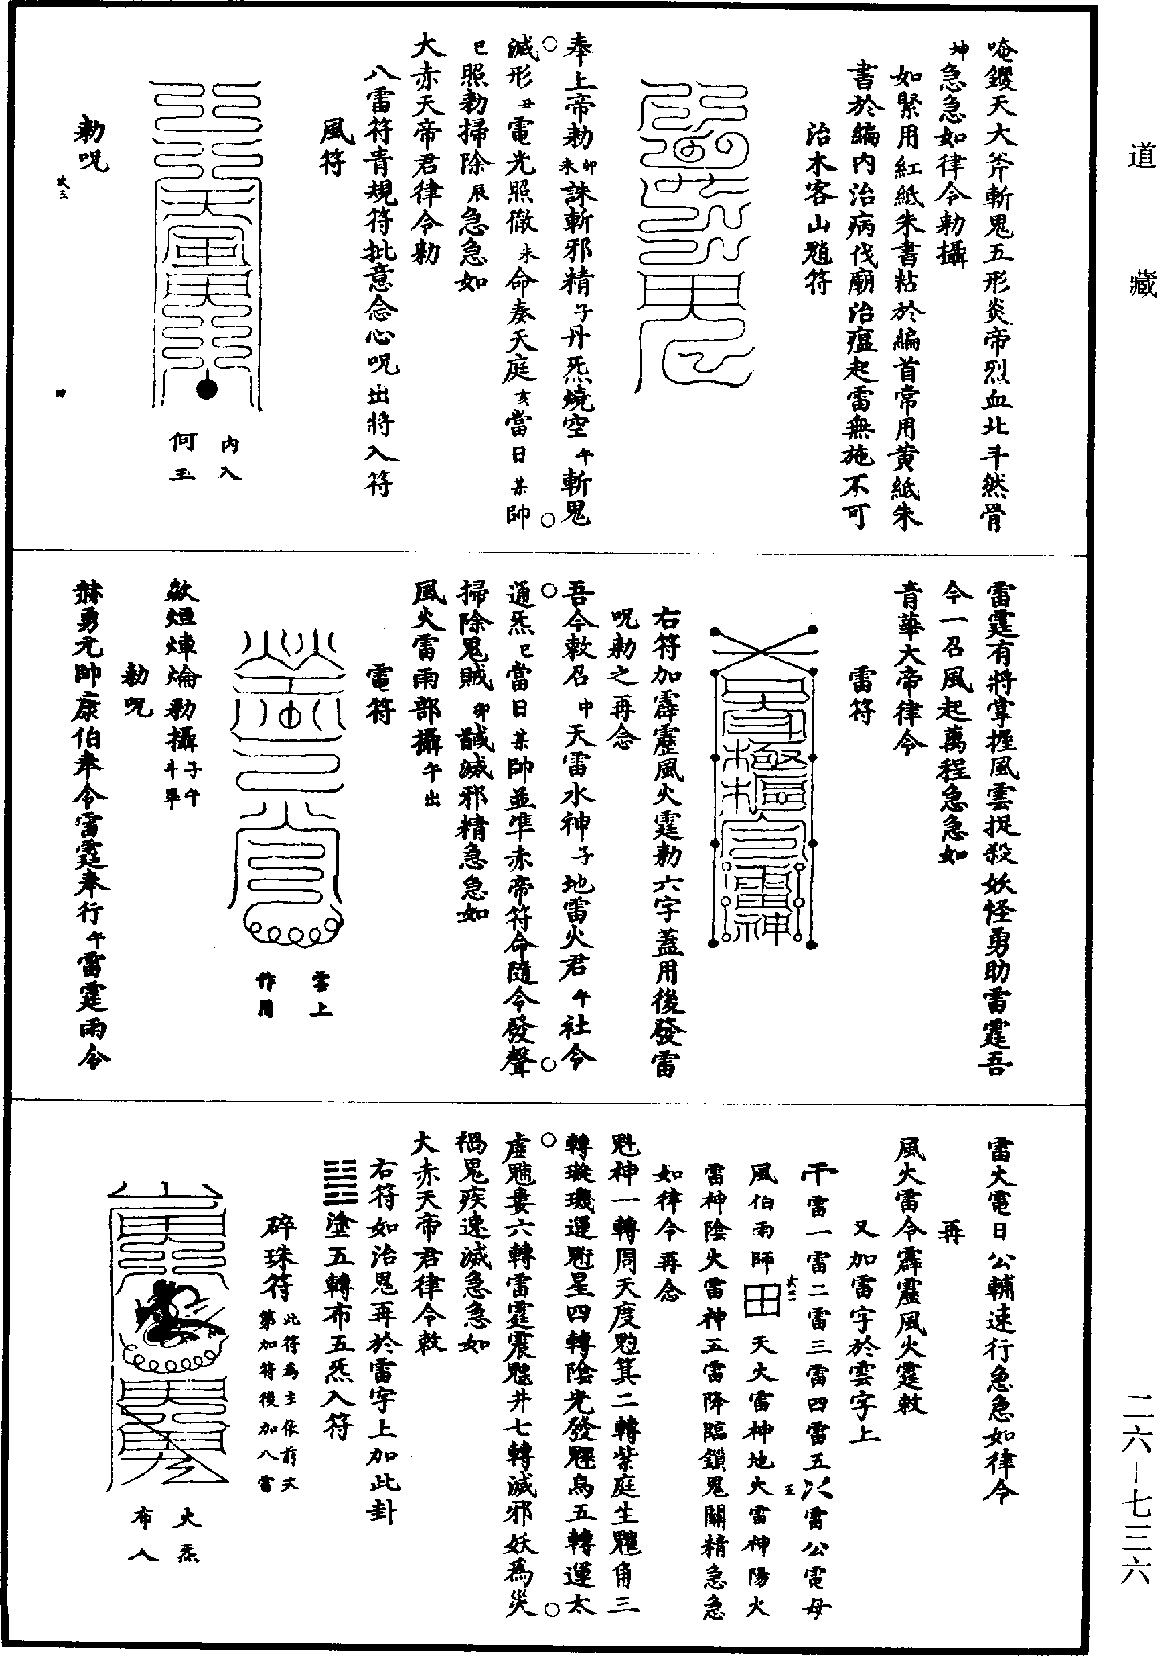 道藏
唵鑁天大斧斬鬼五形炎帝烈血北斗然骨
坤急急如律令勑攝
如緊用紅紙朱書粘於編首常用黃紙朱
書於編內治病伐廟治瘟起雷無施不可
治木客山魈符
奉上帝勑卯未誅斬邪精子丹炁燒空午斬鬼
滅形丑電光照徹未命奏天庭亥當日某帥
巳照勑掃除辰急急如
大赤天帝君律令勑
八雷符青規符批意念心呪出將入符
風符
內入
何玉
勑呪
四
雷霆有將掌握風雲捉殺妖怪勇助雷霆吾
今一召風起萬程急急如
青華大帝律令
雷符
右符加霹靂風火霆勑六字蓋用後發雷
呪勑之再念
吾今敕召中天雷水神子地雷火君午社令
通炁巳當日某帥並準赤帝符命隨令發聲
掃除鬼賊卯馘滅邪精急急如
風火雷雨部攝午出
電符
雲上
作用
歘烜煉爚勑攝子午斗罡
勑呪
赫勇元帥康伯奉令雷霆奉行午雷霆雨令
雷火電日公輔速行急急如律令
再
風火雷令霹靂風火霆敕
又加雷字於雲字上
雷一雷二雷三雷四雷五雷公電母
風伯雨師 天火雷神地火雷神陽火
雷神陰火雷神五雷降臨鎖鬼關精急急
如律令再念
魁神一轉周天度魁箕二轉紫庭生魓角三
轉璇璣運魁星四轉陰光發魓烏五轉運太
虛魓婁六轉雷霆震魓井七轉滅邪妖為災
禍鬼疾速滅急急如
大赤天帝君律令敕
右符如治鬼再於雷字上加此卦
塗五轉布五炁入符
碎珠符此符為主依前文第加符後加八雷
火炁
布入
二六—七三六